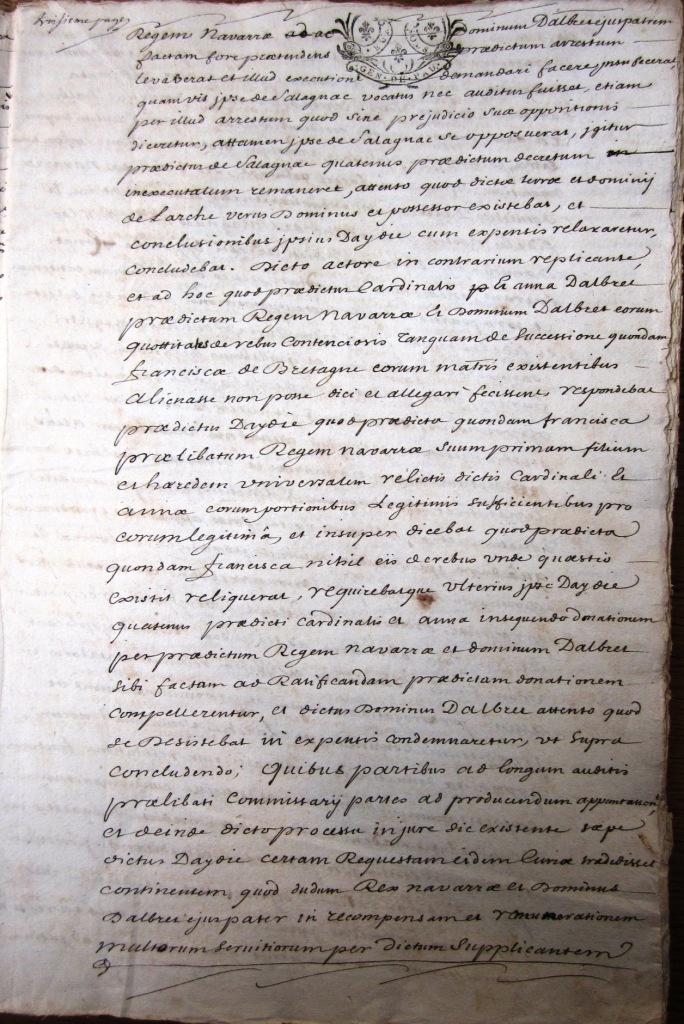 troisieme page
Regem Navarræ ad ac Dominum Dalbret ejus patrem
factam fore prætendens prædictum arrestum
GEN·DE·PAU
levaverat et illud executione demandari facere jpsu fecerat,
quamvis jpse de Salagnac vocatus nec auditus fuisset, etiam
per illud arrestum quod sine prejudicio suæ oppositionis
diceretur, attamen jpse de Salagnac se opposuerat, jgitur
prædictus de Salagnac quatenus prædictum decretum in
inexecutatum remaneret, attento quod dictæ terræ et dominij
de Larche verus Dominus et possessor existebat, et
conclusionibus jpsius Daydie cum expensis relaxaretur,
concludebat. Dicto actore in contrarium replicante,
et ad hoc quod prædictus Cardinalis et anna Dalbret
prædictum Regem Navarræ et Dominum Dalbret eorum
quottitates de rebus contenciosis tanquam de successione quondam
franciscæ de Bretagne eorum matris existentibus
alienasse non posse dici et allegari fecissent respondebat
prædictus Daydie quod prædicta quondam francisca
prælibatum Regem navarræ suum primum filium
et hæredem universalem relictis dictis Cardinali et
annæ eorum portionibus Legitimis sufficientibus pro
eorum legitimâ, et insuper dicebat quod prædicta
quondam francisca nihil eis de rebus unde quæstio
existit reliquerat, requirebatque ulterius jpse Daydie
quatenus prædicti Cardinalis et anna insequendo donationem
per prædictum Regem navarræ et dominum Dalbret
sibi factam ad Ratificandam prædictam donationem
compellerentur, et dictus Dominus Dalbret attento quod
se Desistebat in expensis condemnaretur, ut supra
concludendo; Quibus partibus ad longum auditis
prælibati Commissarij partes ad producendum appunctaverunt,
et deinde dicto processu in jure sic existente sæpe
dictus Daydie certam Requestam eidem Curiæ tradidisset
continentem quod dudum Rex navarræ et Dominus
Dalbret ejus pater in recompensam et remunerationem
multorum servitiorum per Dictum Supplicantem